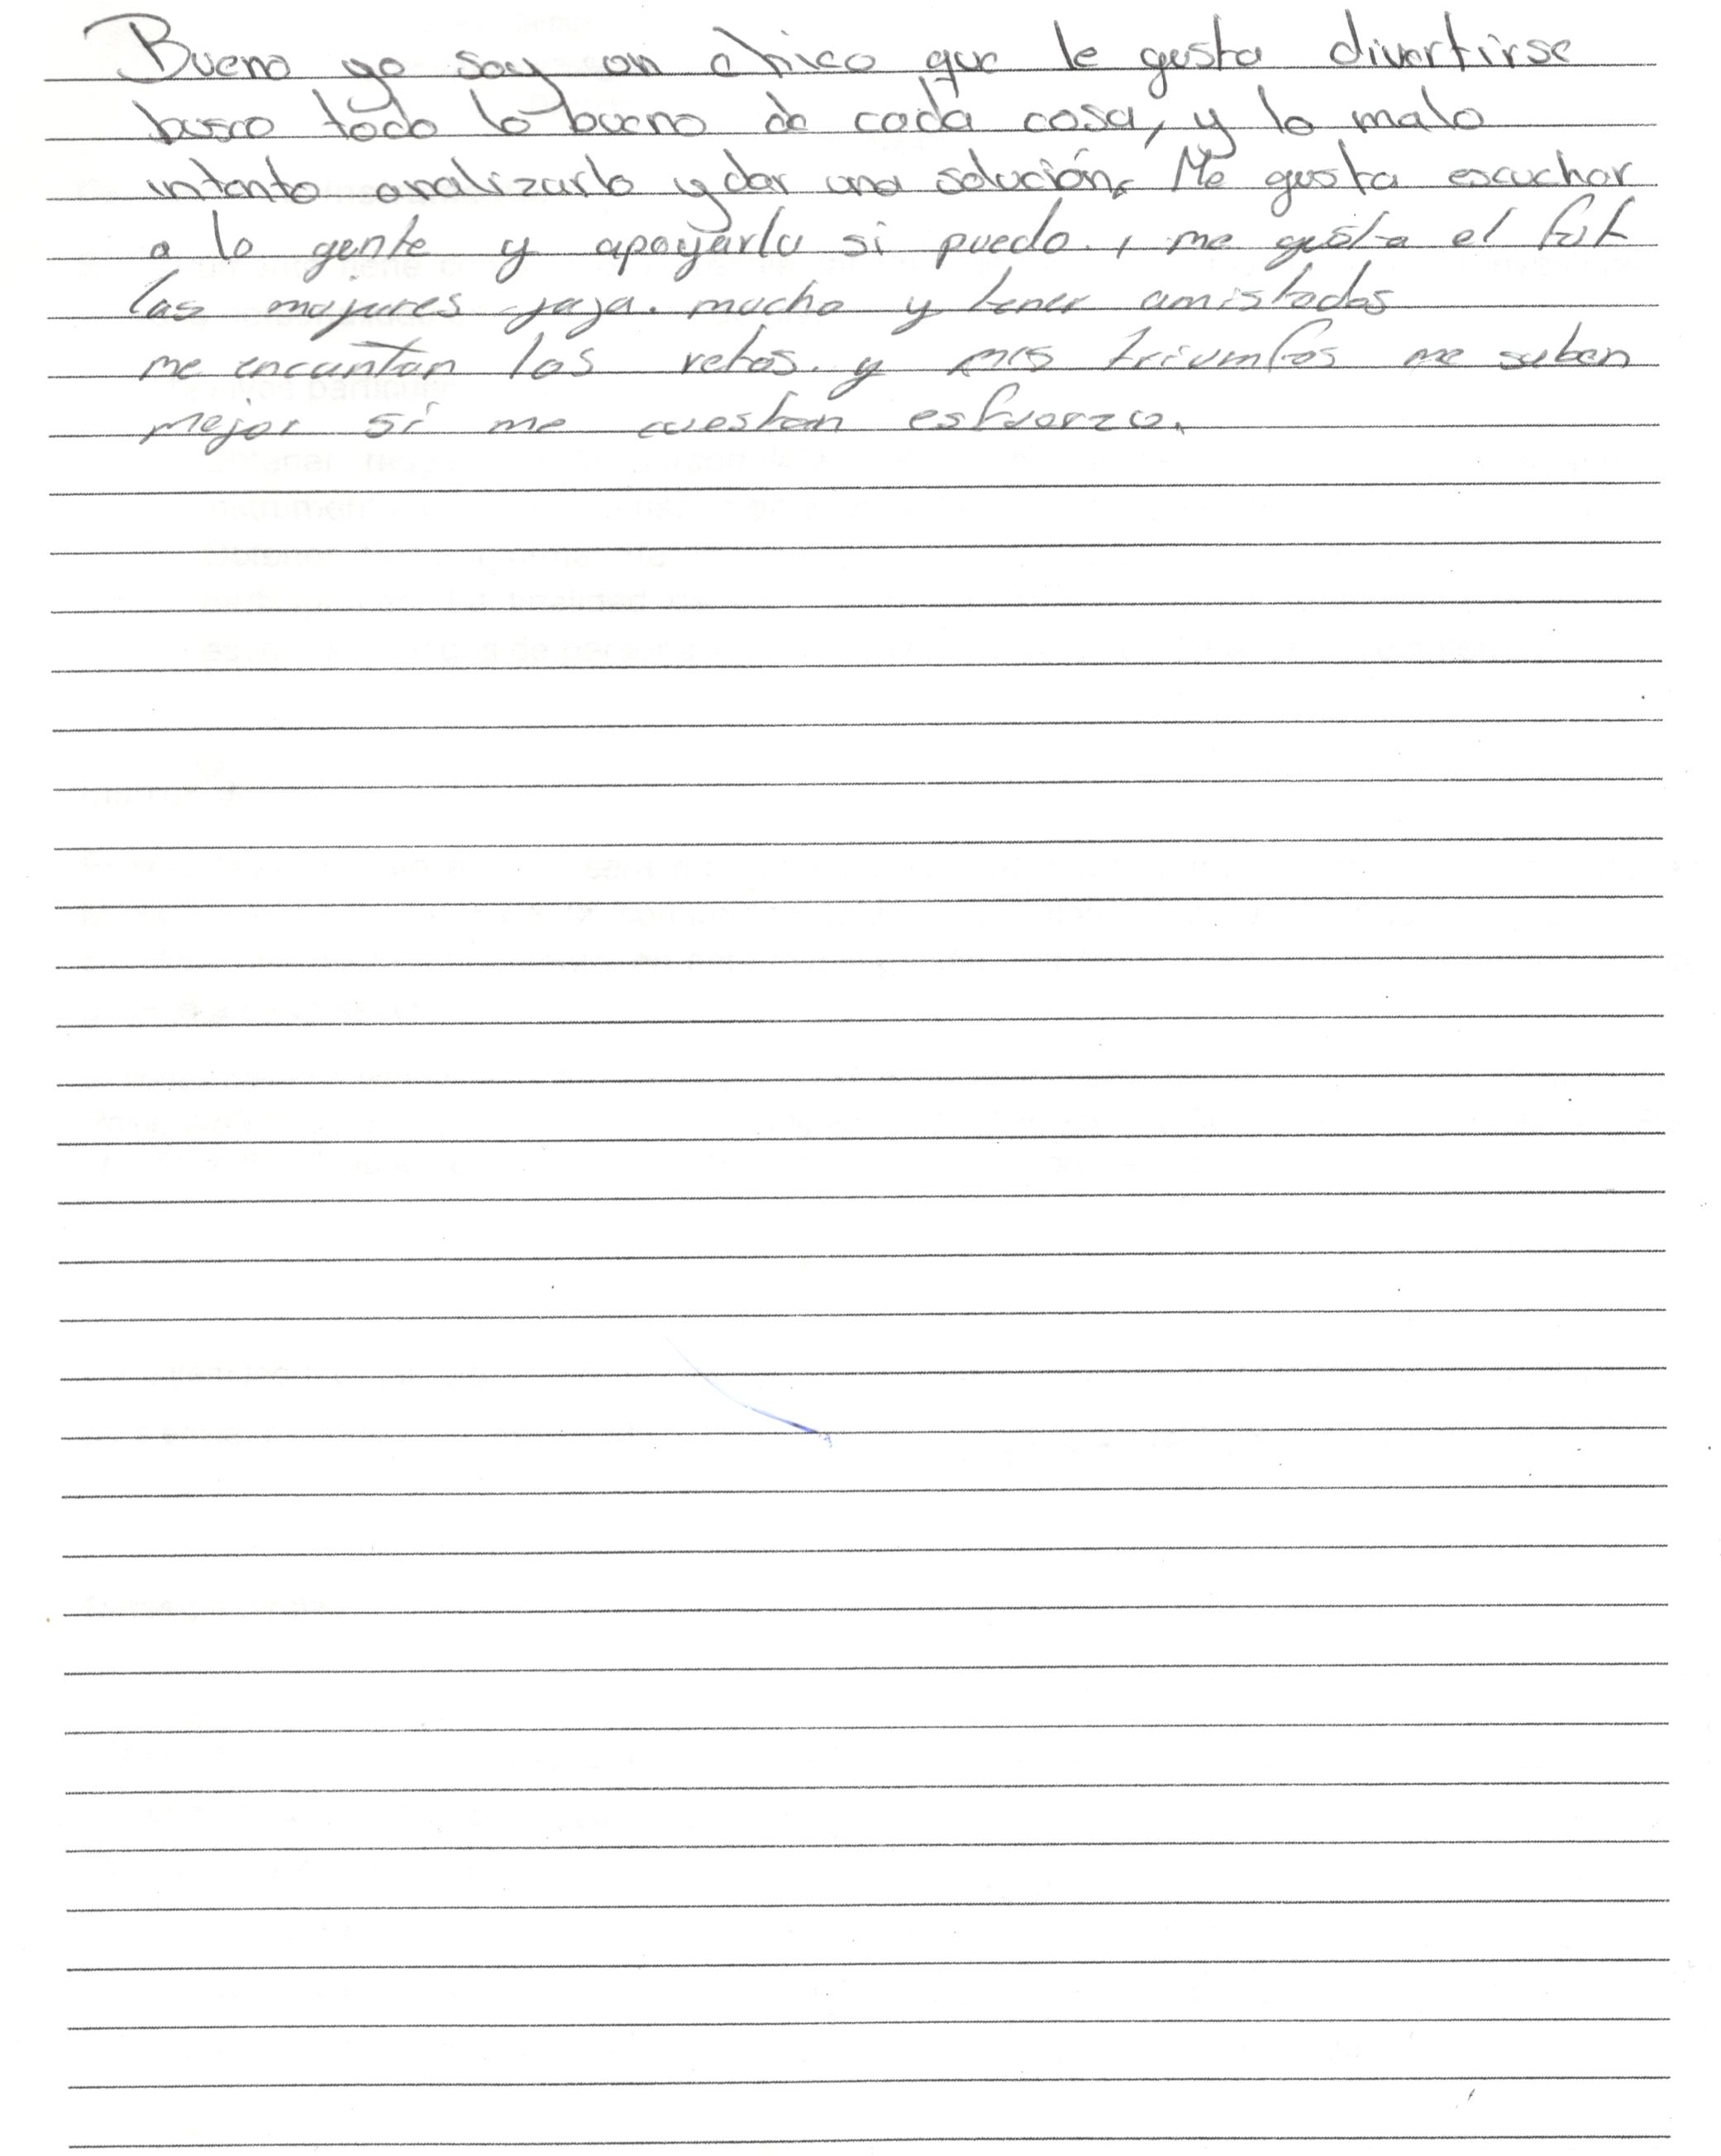 Bueno yo soy un chico que le gusta divertirse
busco todo lo bueno de cada cosa, y lo malo
intento analizarlo y dar una solución. Me gusta escuchar
a la gente y apoyarla si puedo, me gusta el fut
las mujeres jaja. mucho y tener amistades
me encantan los retos. y mis triumfos me saben
mejor si me cuestan esfuerzo.